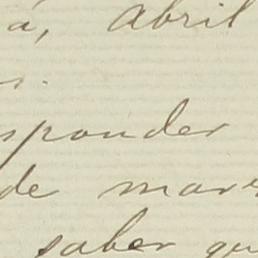 a, Abril
s.
sponder
de mar
saber qu